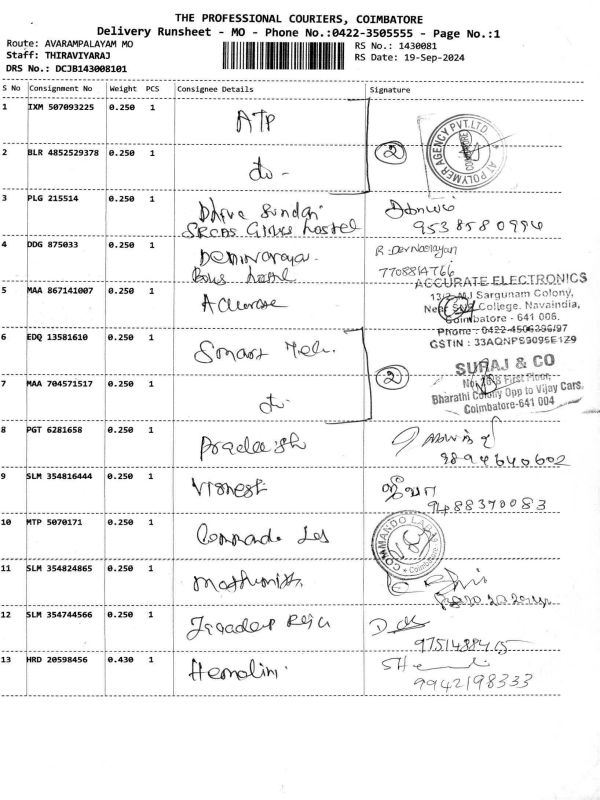 THE PROFESSIONAL COURIERS, COIMBATORE
Delivery Runsheet - MO - Phone No.:0422-3505555 - Page No.:1
Route: AVARAMPALAYAM MO
RS No.: 1430081
Staff: THIRAVIYARAJ
RS Date: 19-Sep-2024
DRS No.: DCJB143008101
S No Consignment No Weight PCS Consignee Details Signature
1 IXM 507093225 0.250 1 ATP
AT POLYMER AGENCY PVT.LTD
COIMBATORE
2 BLR 4852529378 0.250 1 do - 2
3 PLG 215514 0.250 1
hostel 9538580994
4 DDG 875033 0.250 1
R. Dev Narayan
7708814766
5 MAA 867141007 0.250 1 Accurate
ACCURATE ELECTRONICS
Sargunam Colony,
College, Navaindia,
Coimbatore - 641 006.
Phone : 0422-4506396/97
GSTIN : 33AQNPS9095E1Z9
6 EDQ 13581610 0.250 1 Smart Tech.
SURAJ & CO
First Floor,
Bharathi Colony Opp to Vijay Cars,
Coimbatore-641 004
7 MAA 704571517 0.250 1 do 2
8 PGT 6281658 0.250 1 Pradeesh
9894640602
9 SLM 354816444 0.250 1 Vignesh ஜீவா
9488370083
10 MTP 5070171 0.250 1 Commando Les
COMMANDO LABS
Coimbatore
11 SLM 354824865 0.250 1 Mathumitha
12 SLM 354744566 0.250 1 Raju
9751488415
13 HRD 20598456 0.430 1 Hemalini.
9942198333